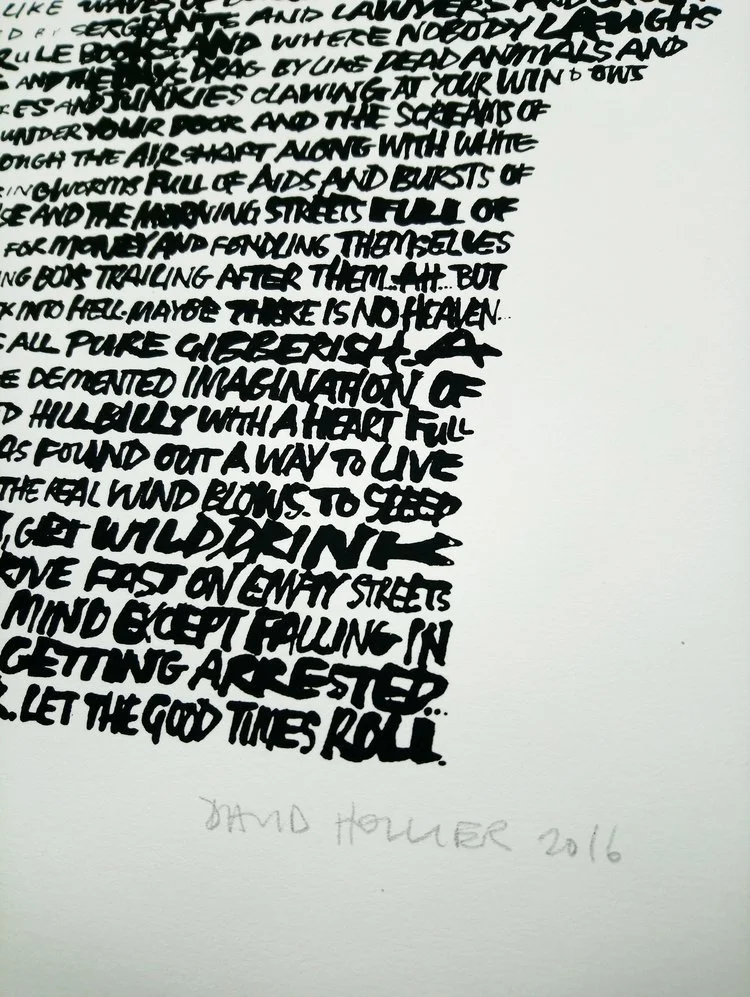 LIKE WAVES OF
SERGEANTS AND LAWYERS AND
RULE BOOKS AND WHERE NOBODY LAUGHS
AND THE DAYS DRAG BY LIKE DEAD ANIMALS AND
ES AND JUNKIES CLAWING AT YOUR WINDOWS
UNDER YOUR DOOR AND THE SCREAMS OF
OUGH THE AIRSHAFT ALONG WITH WHITE
RINGWORMS FULL OF AIDS AND BURSTS OF
SE AND THE MORNING STREETS FULL OF
FOR MONEY AND FONDLING THEMSELVES
NG BOYS TRAILING AFTER THEM..AH... BUT
K INTO HELL. MAYBE THERE IS NO HEAVEN...
S ALL PURE GIBBERISH. A
E DEMENTED IMAGINATION OF
D HILLBILLY WITH A HEART FULL
AS FOUND OUT A WAY TO LIVE
THE REAL WIND BLOWS. TO SLEEP
, GET WILD, DRINK
RIVE FAST ON EMPTY STREETS
MIND EXCEPT FALLING IN
GETTING ARRESTED...
R. LET THE GOOD TIMES ROLL.
DAVID HOLLIER 2016